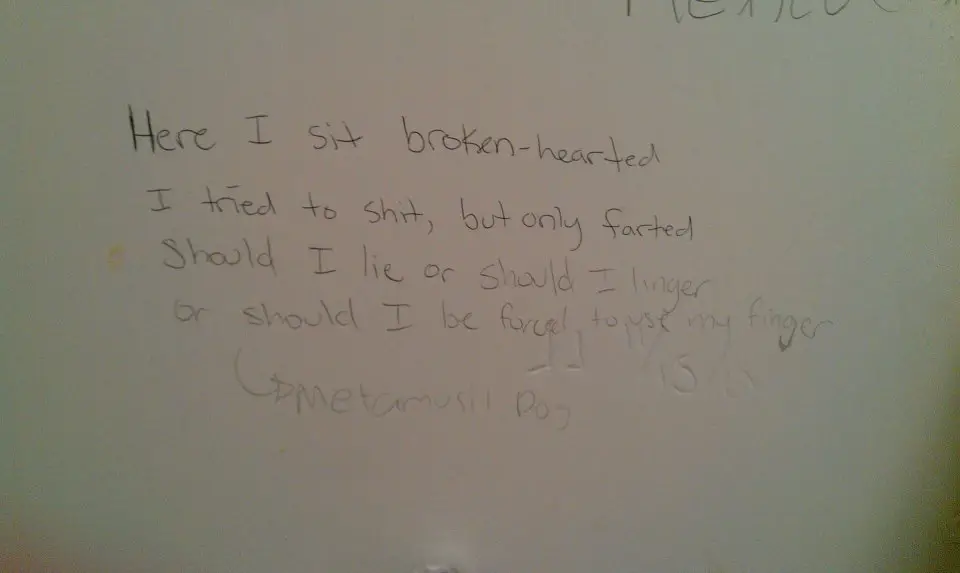 MEXICO
Here I sit broken-hearted
I tried to shit, but only farted
Should I lie or should I linger
or should I be forced to use my finger
Metamusil Dog